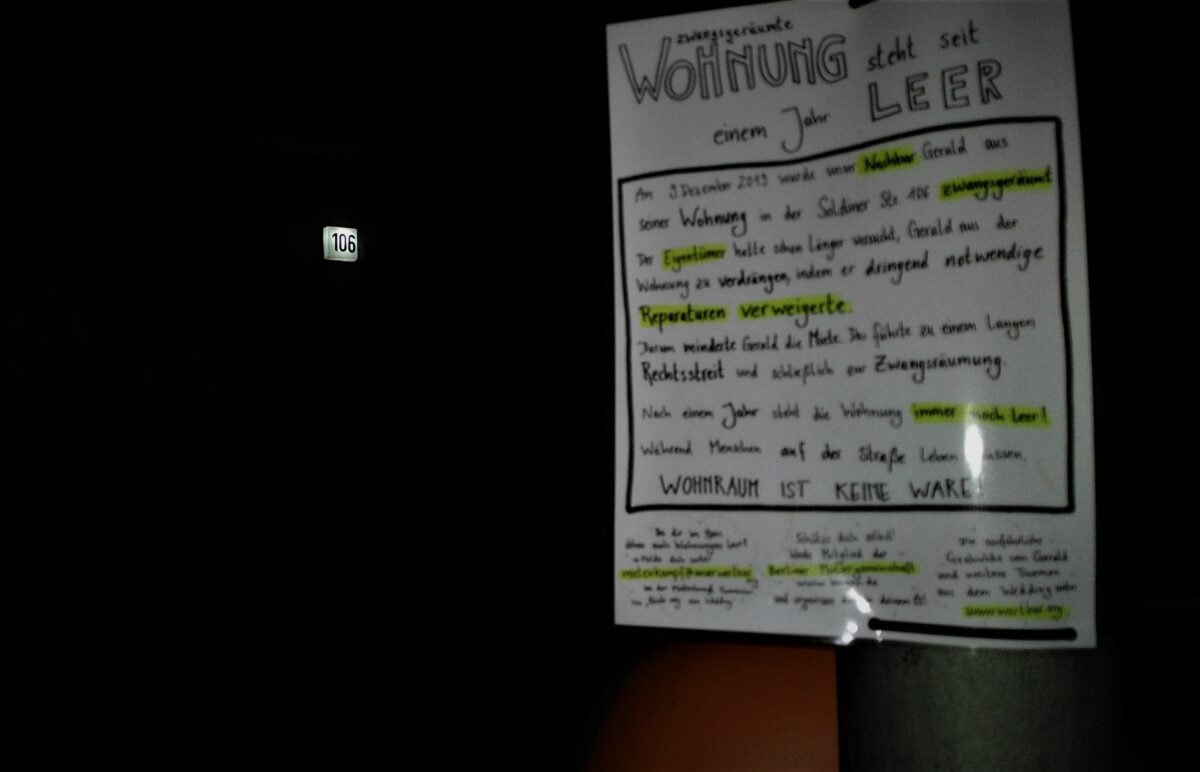 106
zwangsgeräumte
WOHNUNG steht seit
einem Jahr LEER
Am 9. Dezember 2019 wurde unser Nachbar Gerald aus
seiner Wohnung in der Soldiner Str. 106 zwangsgeräumt
Der Eigentümer hatte schon länger versucht, Gerald aus der
Wohnung zu verdrängen, indem er dringend notwendige
Reparaturen verweigerte.
Darum minderte Gerald die Miete. Das führte zu einem langen
Rechtsstreit und schließlich zur Zwangsräumung.
Nach einem Jahr steht die Wohnung immer noch leer!
Während Menschen auf der Straße leben müssen.
WOHNRAUM IST KEINE WARE!
Wohnungen leer?
Mitglied der
Berliner Mietergemeinschaft
Die ausführliche
Geschichte von Gerald
und weitere Themen
aus dem Wedding